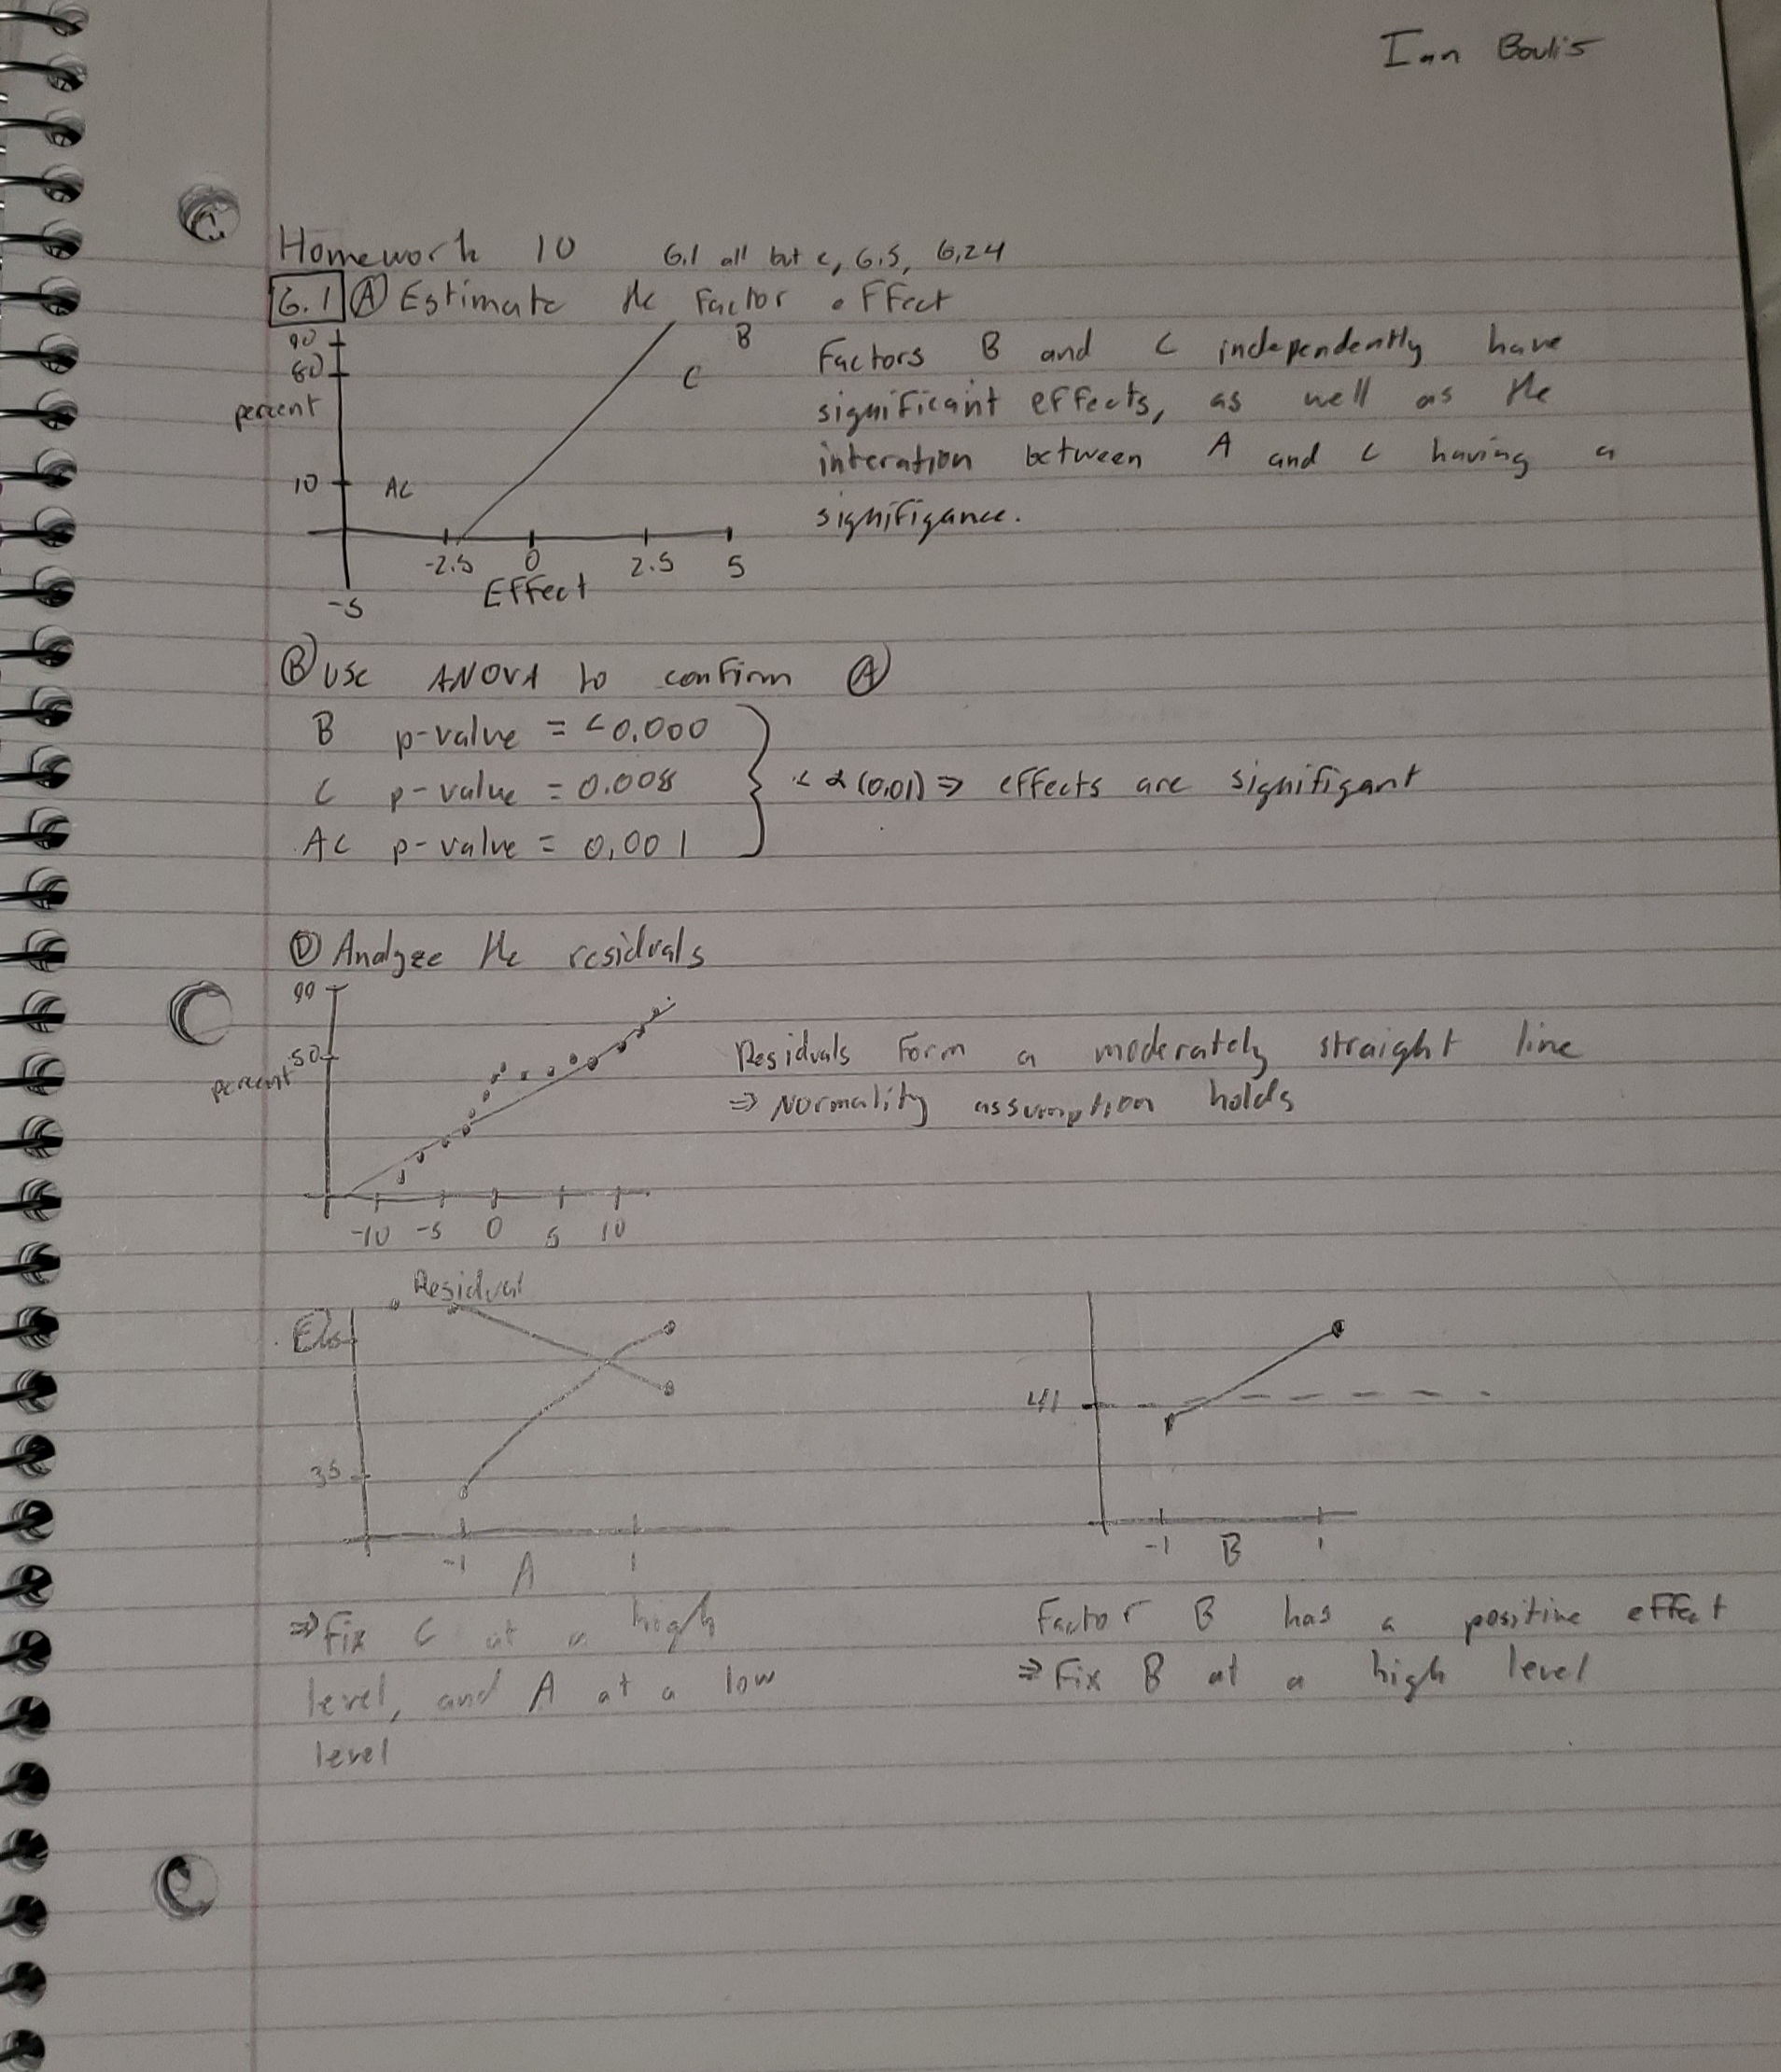 Ian Boulis
Homework 10 6.1 all but c, 6.5, 6.24
6.1 A Estimate the Factor effect
90
80
percent
10
B
C
AC
-2.5 0 2.5 5
-5
Effect
Factors B and C independently have
significant effects, as well as the
interation between A and C having a
signifigance.
B use ANOVA to confirm A
B p-value = <0.000
C p-value = 0.008
AC p-value = 0.001
< α (0.01) ⇒ effects are signifigant
D Analyze the residuals
99
50
percent
-10 -5 0 5 10
Residual
Residuals form a moderately straight line
⇒ Normality assumption holds
E
35
-1 A 1
⇒ Fix C at a high
level, and A at a low
level
41
-1 B 1
Factor B has a positive effect
⇒ Fix B at a high level